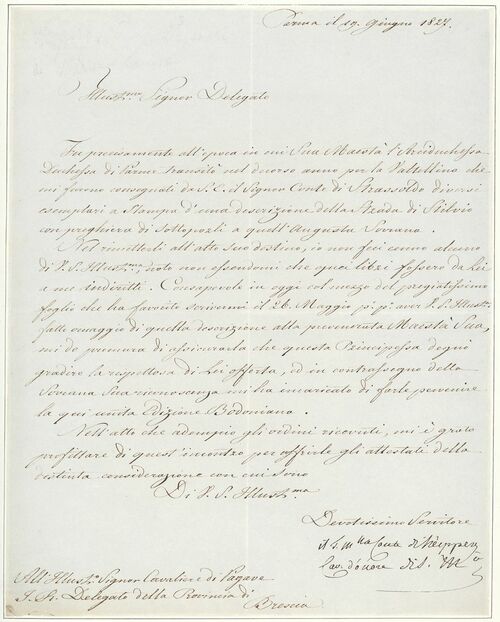 Parma il 19. Giugno 1827.
Illustrmo Signor Delegato
Fu precisamente all'epoca in cui Sua Maestà l'Arciduchessa
Duchessa di Parma transitò nel decorso anno per la Valtellina che
mi furono consegnati da S. E. il Signor Conte di Strassoldo diversi
esemplari a Stampa d'una descrizione della Strada di Stelvio
con preghiera di Sottoporli a quell'Augusta Sovrana.
Nel rimetterli all'alto Suo destino, io non feci cenno alcuno
di V. S. Illustrma, noto non essendomi che quei libri fossero da Lei
a me indiritti. Consapevole in oggi col mezzo del pregiatissimo
foglio che ha favorito scrivermi il 26. Maggio p. p. aver V. S. Illustr.
fatto omaggio di quella descrizione alla prevenerata Maestà Sua,
mi do premura di assicurarla che questa Principessa degnò
gradire la rispettosa di Lei offerta, ed in contrassegno della
Sovrana Sua riconoscenza mi ha incaricato di farle pervenire
la qui unita Edizione Bodoniana.
Nell'atto che adempio gli ordini ricevuti, mi è grato
profittare di quest'incontro per offrirle gli attestati della
distinta considerazione con cui sono
Di V. S. Illustrma
Devotissimo Servitore
Conte di Neipperg
Cav. d'onore di S. M.
All'Illustr. Signor Cavaliere di Pagave
I. R. Delegato della Provincia di
Brescia